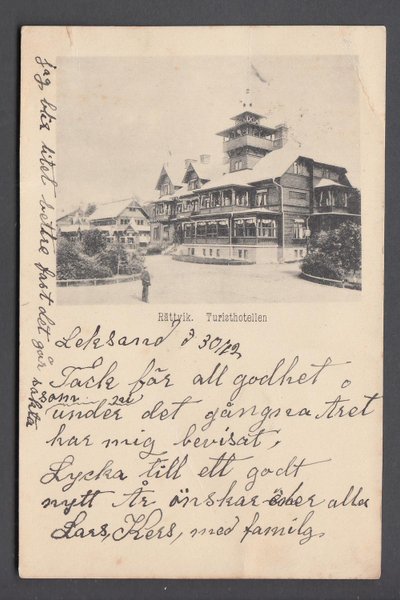 Rättvik. Turisthotellen
Leksand d 30/12
Tack för all godhet
som ni
under det gångna Året
har mig bevisat,
Lycka till ett godt
nytt År önskar eder alla
Lars, Kers, med familg.
jag blir litet bettre fast det går sakta